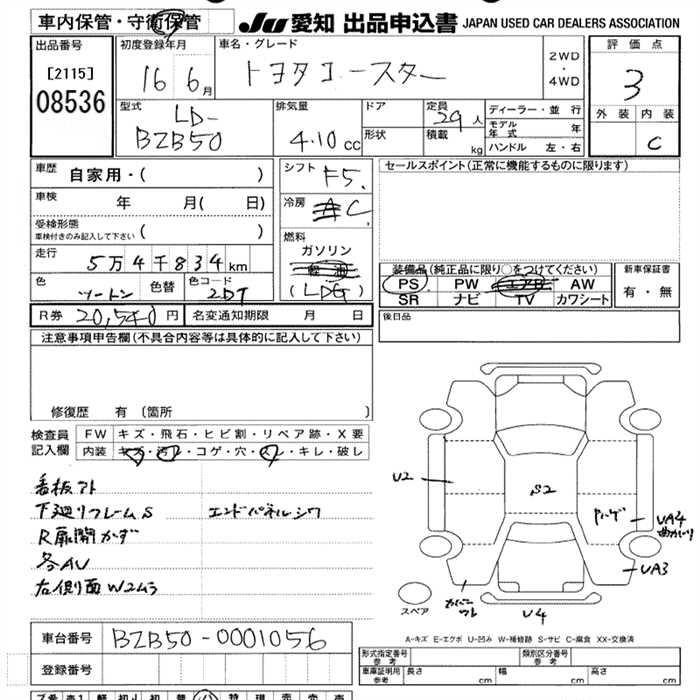 車内保管・守衛保管
JU 愛知 出品申込書 JAPAN USED CAR DEALERS ASSOCIATION
出品番号
[2115]
08536
初度登録年月
16 6月
車名・グレード
トヨタコースター
2WD
・
4WD
評価点
3
外装 内装
C
型式
LD-
BZB50
排気量
4.10 cc
ドア
形状
定員
29人
積載 kg
ディーラー・並行
モデル年式 年
ハンドル 左・右
車歴
自家用・( )
車検
年 月( 日)
受検形態
車検付きのみ記入して下さい ( )
走行
5万4千834km
色
ツートン
色替
色コード
2DT
シフト
F5
冷房
AC
燃料
ガソリン
軽油
(LDG)
セールスポイント(正常に機能するものに限ります)
装備品(純正品に限り○をつけてください)
PS PW エアB AW
SR ナビ TV カワシート
新車保証書
有・無
R券 20,540円
名変通知期限 月 日
後日品
注意事項申告欄(不具合内容等は具体的に記入して下さい)
修復歴 有 (箇所 )
検査員
記入欄
FW キズ・飛石・ヒビ割・リペア跡・X要
内装 キズ・汚レ・コゲ・穴・スレ・キレ・破レ
看板アト
下廻リフレームS エンドパネルシワ
R扉開カず
各AU
右側面W2ムラ
U2
S2
ハゲ
UA4
曲がり
UA3
カバー
ワレ
U4
スペア
A-キズ E-エクボ U-凹み W-補修跡 S-サビ C-腐食 XX-交換済
車台番号 BZB50-0001056
登録番号
形式指定番号
参考
類別区分番号
参考
車庫証明用
参考
長さ
cm
幅
cm
高さ
cm